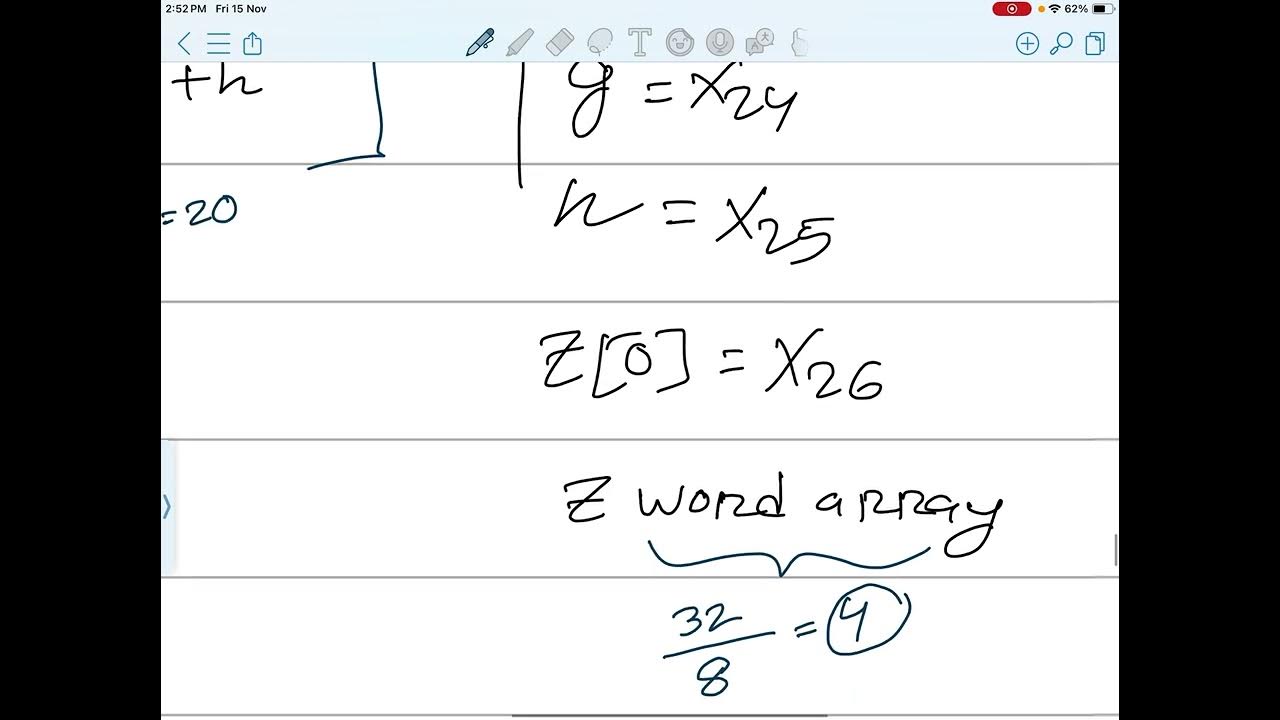 2:52 PM Fri 15 Nov 62%
+h
y = X24
= 20
h = X25
Z[0] = X26
Z word array
32
8
= 4